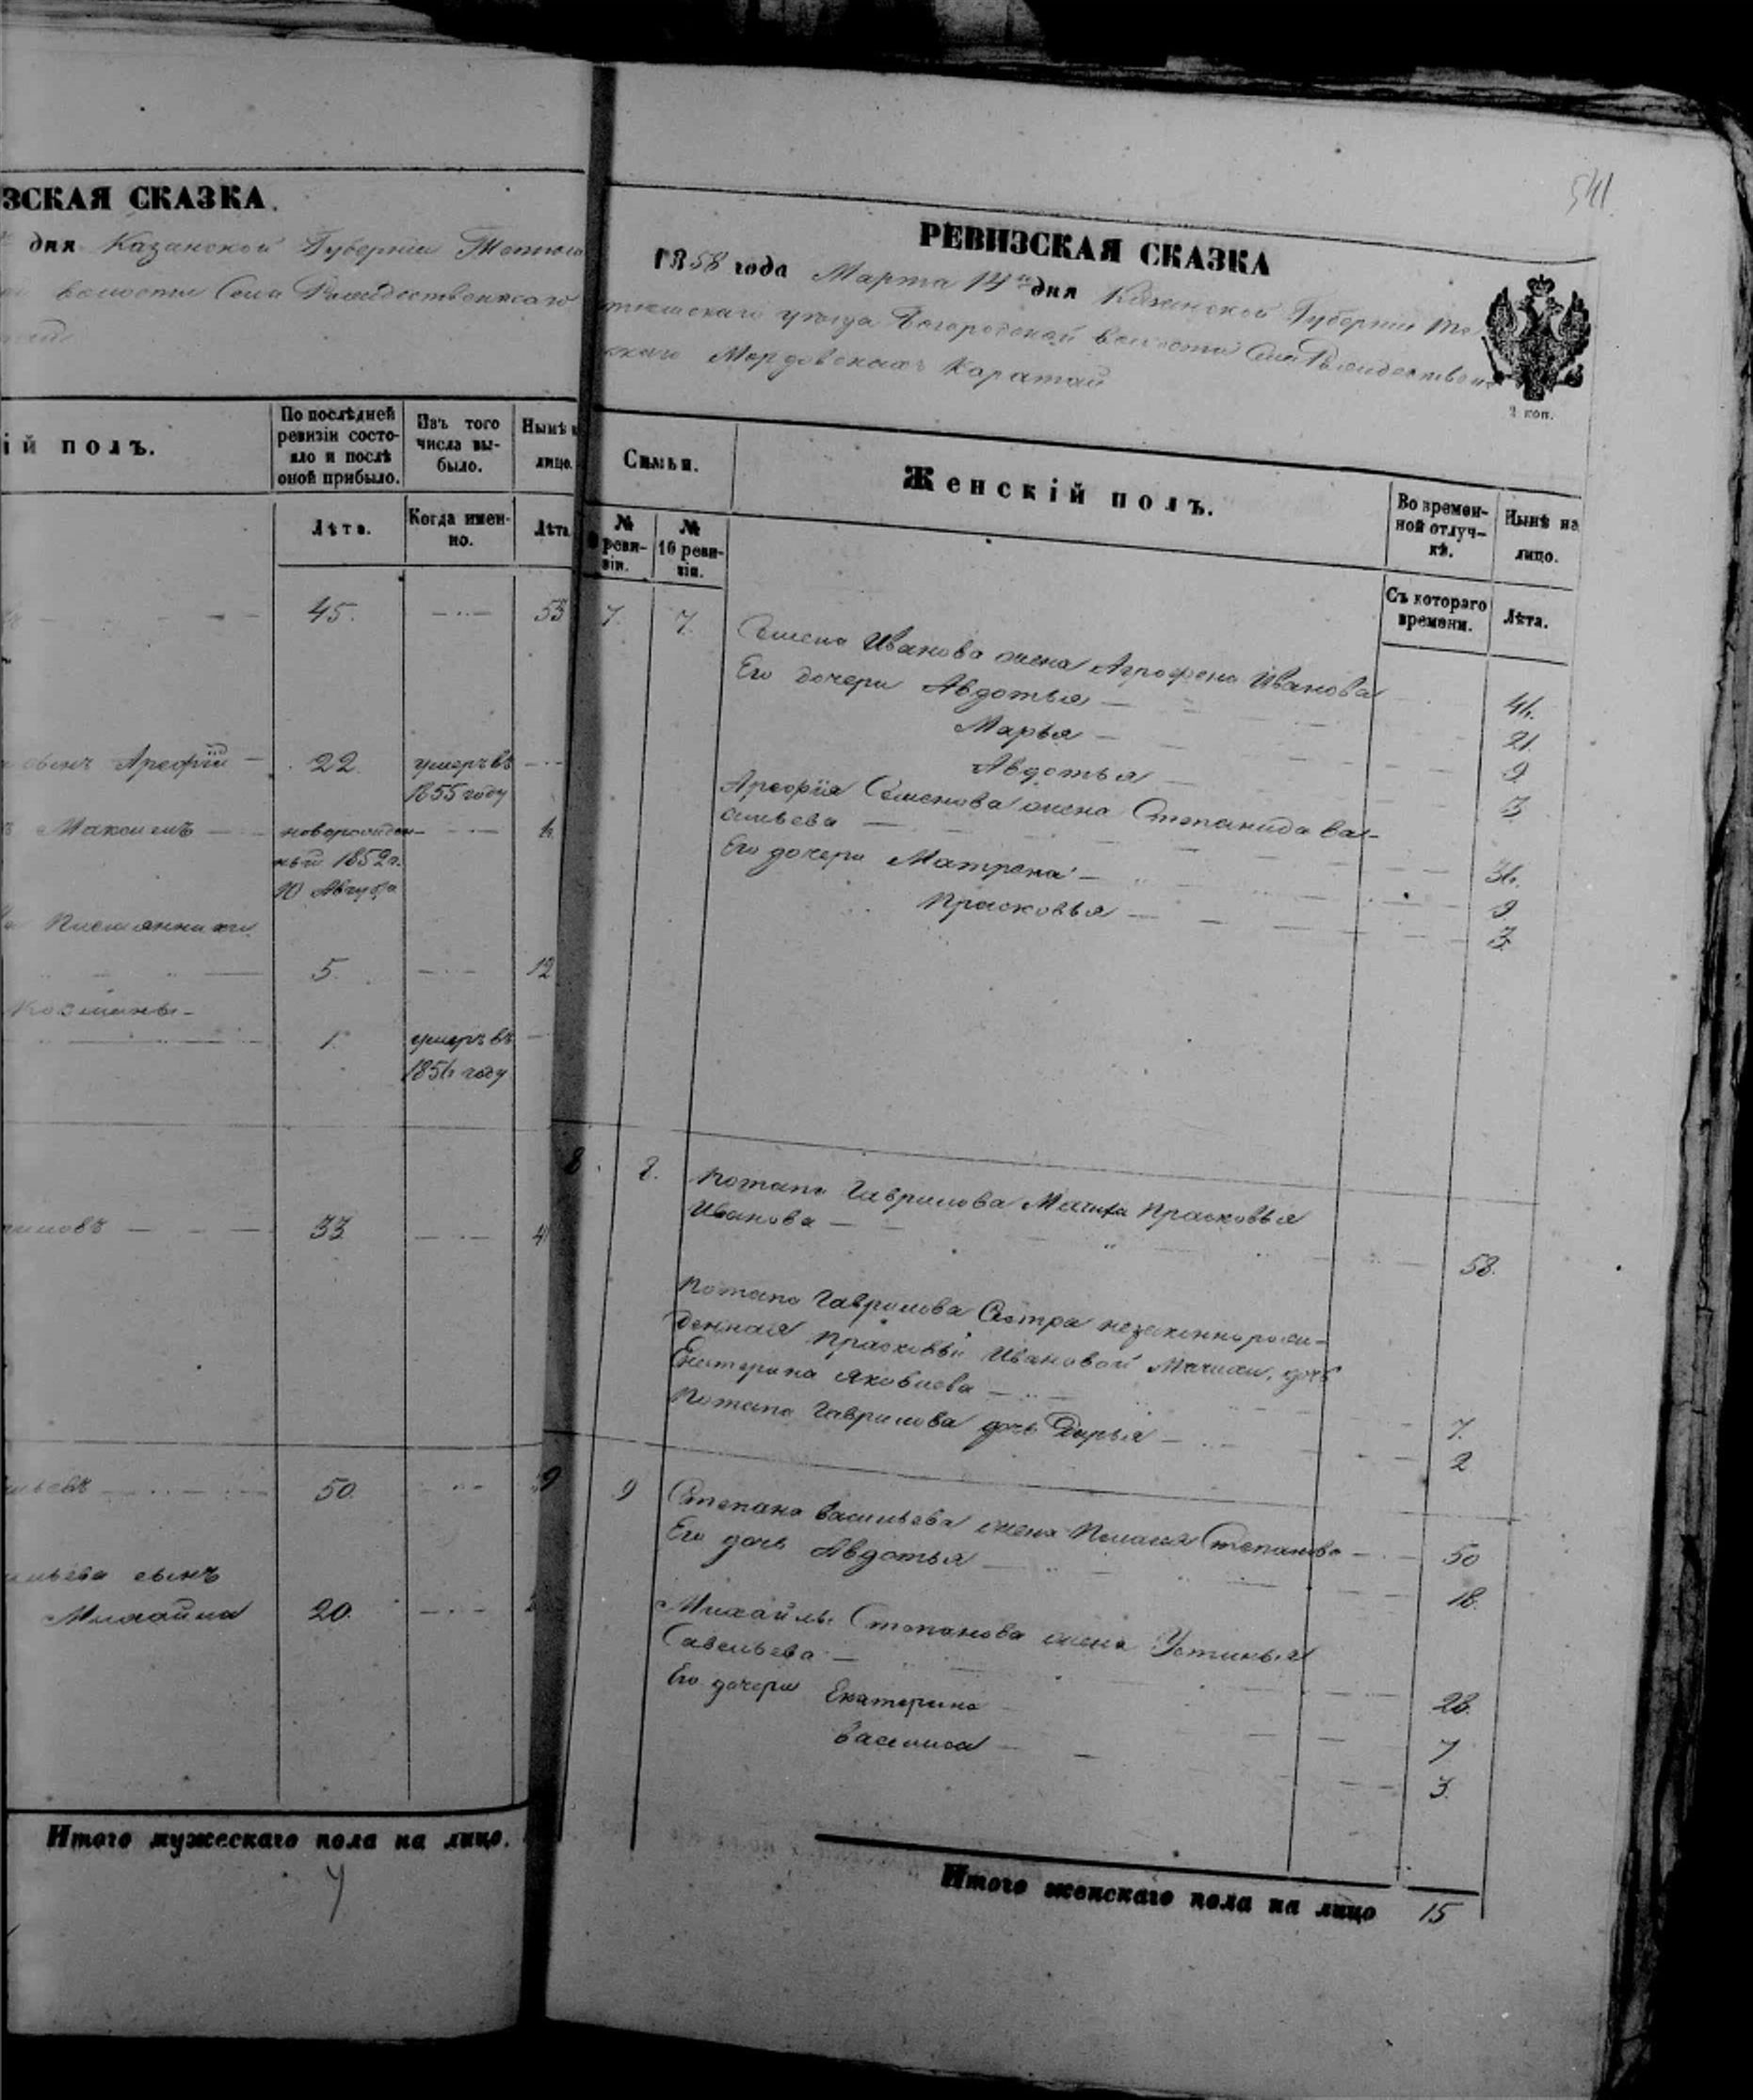 ЗСКАЯ СКАЗКА.
дня Казанской Губернии Тетюш
волости Села Рождественскаго
ій полъ.
По послѣдней ревизіи состояло и послѣ оной прибыло.
Изъ того числа выбыло.
Нынѣ
лицо.
Лѣта.
Когда именно.
Лѣта
45. 53
сынъ Арефій 22. умеръ въ
1855 году
Максимъ новорожден-
ный 1852 г.
10 Августа
5. 12
1. умеръ въ
1854 году
33 41
50.
сынъ
Михайла 20.
Итого мужескаго пола на лицо.
7
541
РЕВИЗСКАЯ СКАЗКА
1858 года Марта 14 дня Казанской Губерніи Те
тюшскаго уѣзда Богородской волости Села Рождествен
скаго Мордовскихъ Каратай
2 коп.
Семьи.
Женскій полъ.
Во временной отлучкѣ.
Нынѣ на лицо.
№ ревизіи.
№ 10 ревизіи.
Съ котораго времени.
Лѣта.
7. 7. Семена Иванова жена Агрофена Иванова 44.
Его дочери Авдотья 21.
Марья 9.
Авдотья 3.
Арефія Семенова жена Степанида Ва-
сильева 34.
Его дочери Матрена 9.
Прасковья 3.
8. 8. Потапа Гаврилова Мачиха Прасковья
Иванова 58.
Потапа Гаврилова Сестра незаконнорож-
денная Прасковьи Ивановой Мачихи, дочь
Екатерина Яковлева 7.
Потапа Гаврилова дочь Дарья 2
9 9 Степана Васильева жена Пелагея Степанова 50
Его дочь Авдотья 18.
Михайлы Степанова жена Устинья
Савельева 28.
Его дочери Екатерина 7
Василиса 3.
Итого женскаго пола на лицо 15